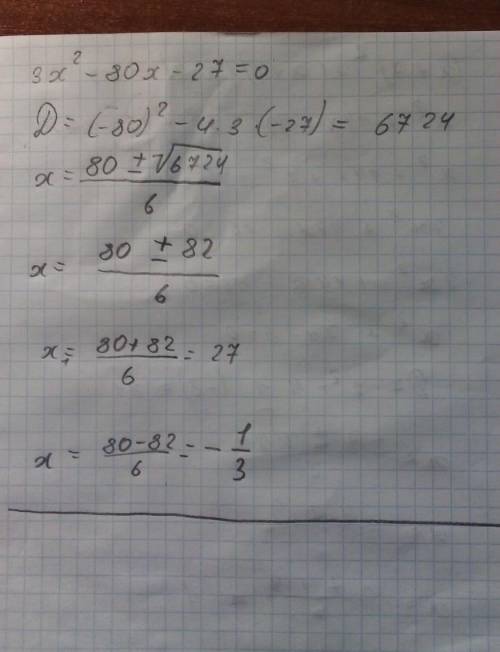 3x² - 80x - 27 = 0
D = (-80)² - 4·3·(-27) = 6724
x = (80 ± √6724)/6
x = (80 ± 82)/6
x₁ = (80+82)/6 = 27
x = (80-82)/6 = -1/3